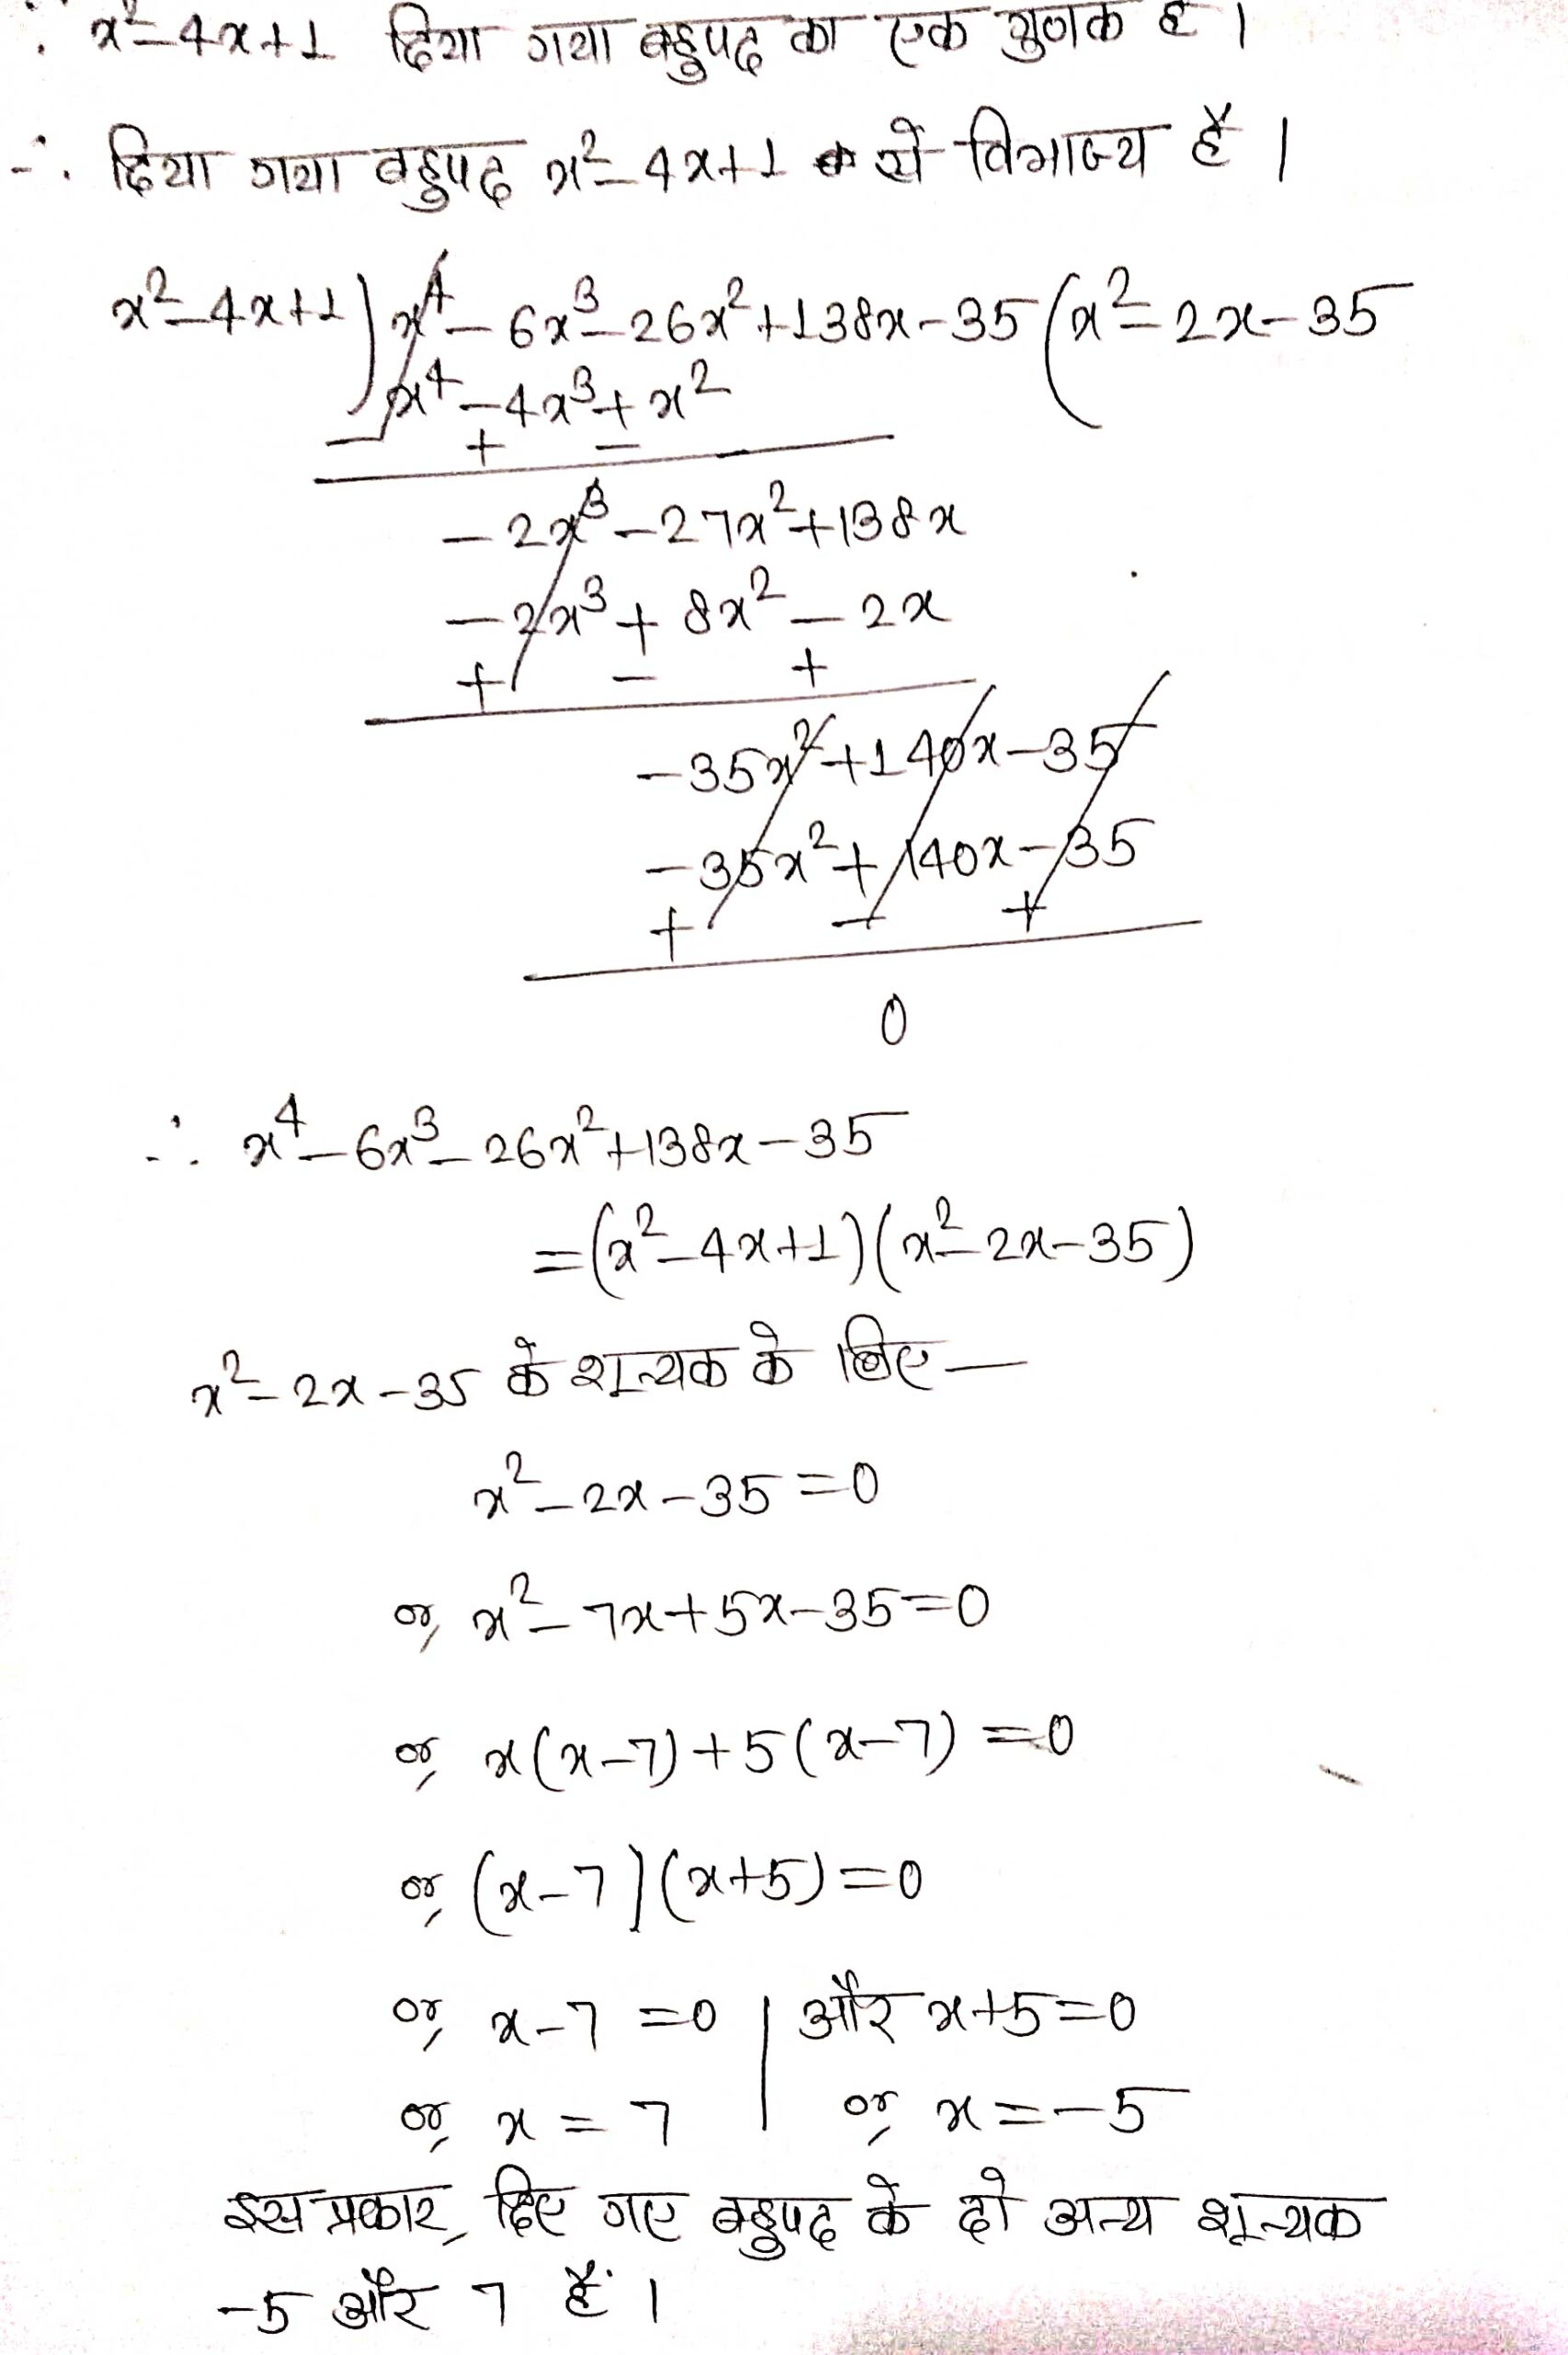 ∵ x²-4x+1 दिया गया बहुपद का एक गुणक है।
∴ दिया गया बहुपद x²-4x+1 से विभाज्य है।
x²-4x+1)x⁴-6x³-26x²+138x-35(x²-2x-35
x⁴-4x³+x²
- + -
-2x³-27x²+138x
-2x³+8x²-2x
+ - +
-35x²+140x-35
-35x²+140x-35
+ - +
0
∴ x⁴-6x³-26x²+138x-35
=(x²-4x+1)(x²-2x-35)
x²-2x-35 के शून्यक के लिए—
x²-2x-35=0
or, x²-7x+5x-35=0
or, x(x-7)+5(x-7)=0
or, (x-7)(x+5)=0
or, x-7=0 | और x+5=0
or, x=7 | or, x=-5
इस प्रकार, दिए गए बहुपद के दो अन्य शून्यक
-5 और 7 हैं।